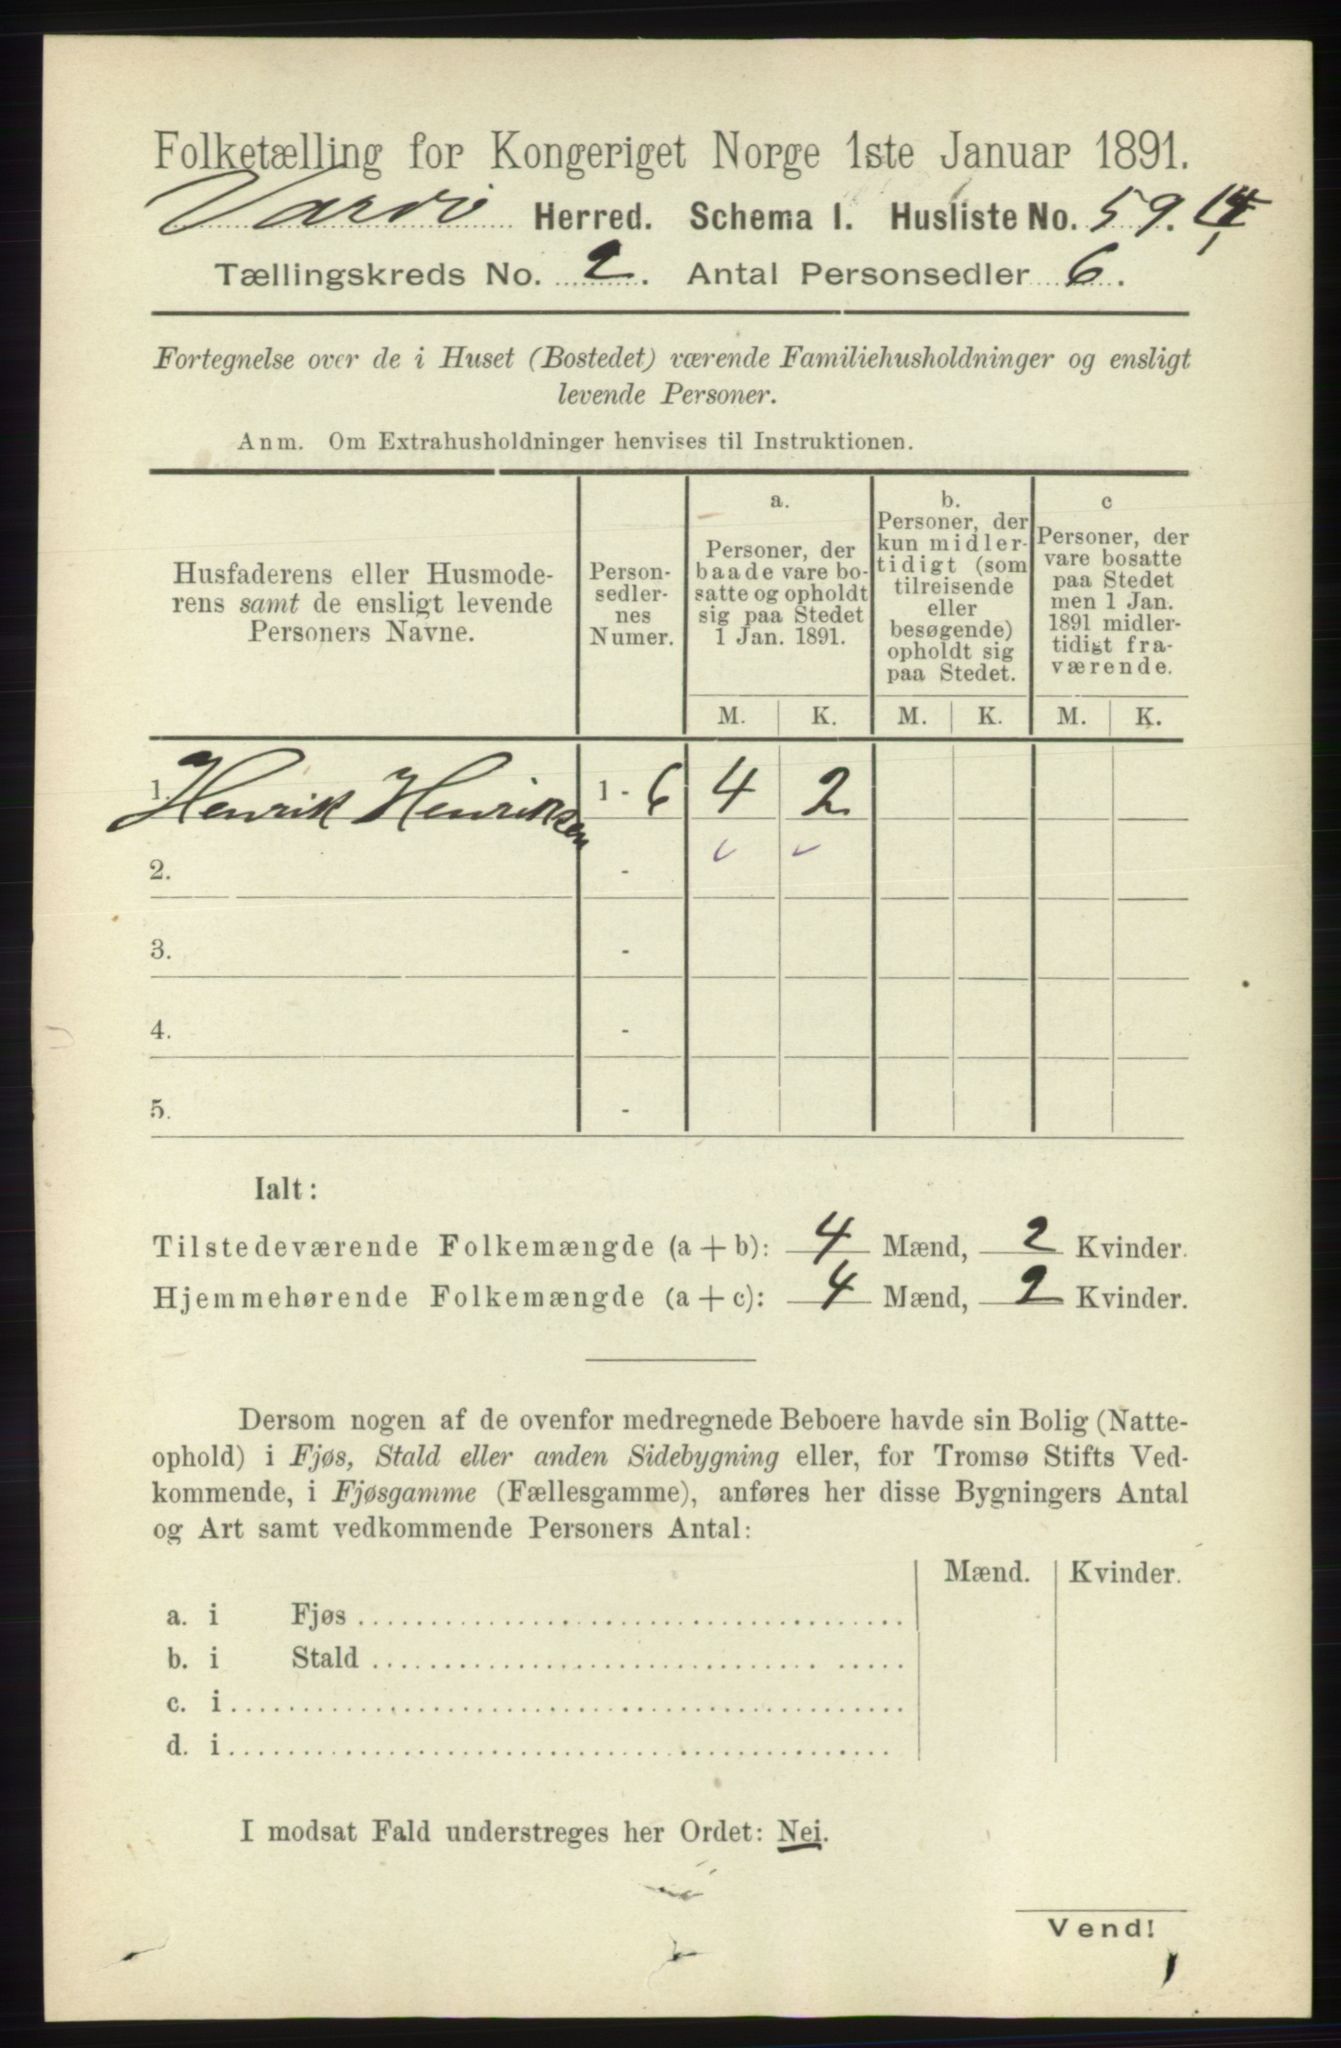 Folketælling for Kongeriget Norge 1ste Januar 1891.
Vardö Herred. Schema I. Husliste No. 59. 14
Tællingskreds No. 2. Antal Personsedler 6.
Fortegnelse over de i Huset (Bostedet) værende Familiehusholdninger og ensligt
levende Personer.
Anm. Om Extrahusholdninger henvises til Instruktionen.
Husfaderens eller Husmode-
rens samt de ensligt levende
Personers Navne.
Person-
sedler-
nes
Numer.
a.
Personer, der
baade vare bo-
satte og opholdt
sig paa Stedet
1 Jan. 1891.
b.
Personer, der
kun midler-
tidigt (som
tilreisende
eller
besøgende)
opholdt sig
paa Stedet.
c
Personer, der
vare bosatte
paa Stedet
men 1 Jan.
1891 midler-
tidigt fra-
værende.
M. K. M. K. M. K.
1. Henrik Henriksen 1 - 6 4 2
2. -
3. -
4. -
5. -
Ialt:
Tilstedeværende Folkemængde (a + b): 4 Mænd, 2 Kvinder.
Hjemmehørende Folkemængde (a + c): 4 Mænd, 2 Kvinder.
Dersom nogen af de ovenfor medregnede Beboere havde sin Bolig (Natte-
ophold) i Fjøs, Stald eller anden Sidebygning eller, for Tromsø Stifts Ved-
kommende, i Fjøsgamme (Fællesgamme), anføres her disse Bygningers Antal
og Art samt vedkommende Personers Antal:
Mænd. Kvinder.
a. i Fjøs
b. i Stald
c. i
d. i
I modsat Fald understreges her Ordet: Nei.
Vend!